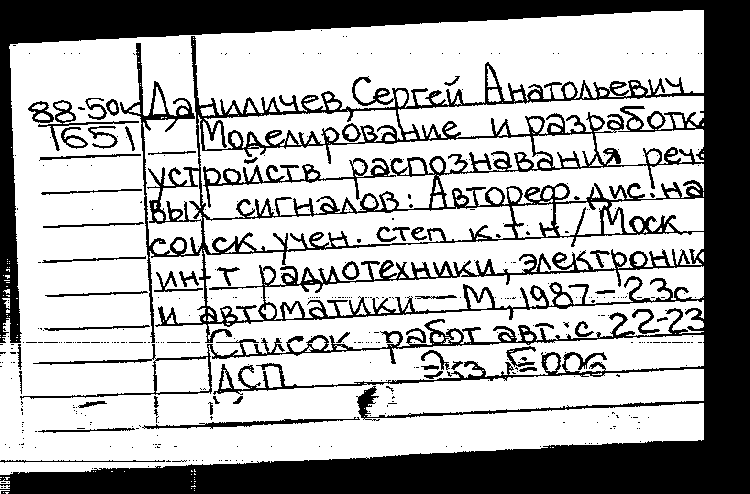 88-50к Даниличев, Сергей Анатольевич.
1651 Моделирование и разработка
устройств распознавания рече
вых сигналов: Автореф. дис. на
соиск. учен. степ. к.т.н. / Моск.
ин-т радиотехники, электроник
и автоматики. — М., 1987. — 23с.
Список работ авт.: с. 22-23
ДСП. Экз. №006